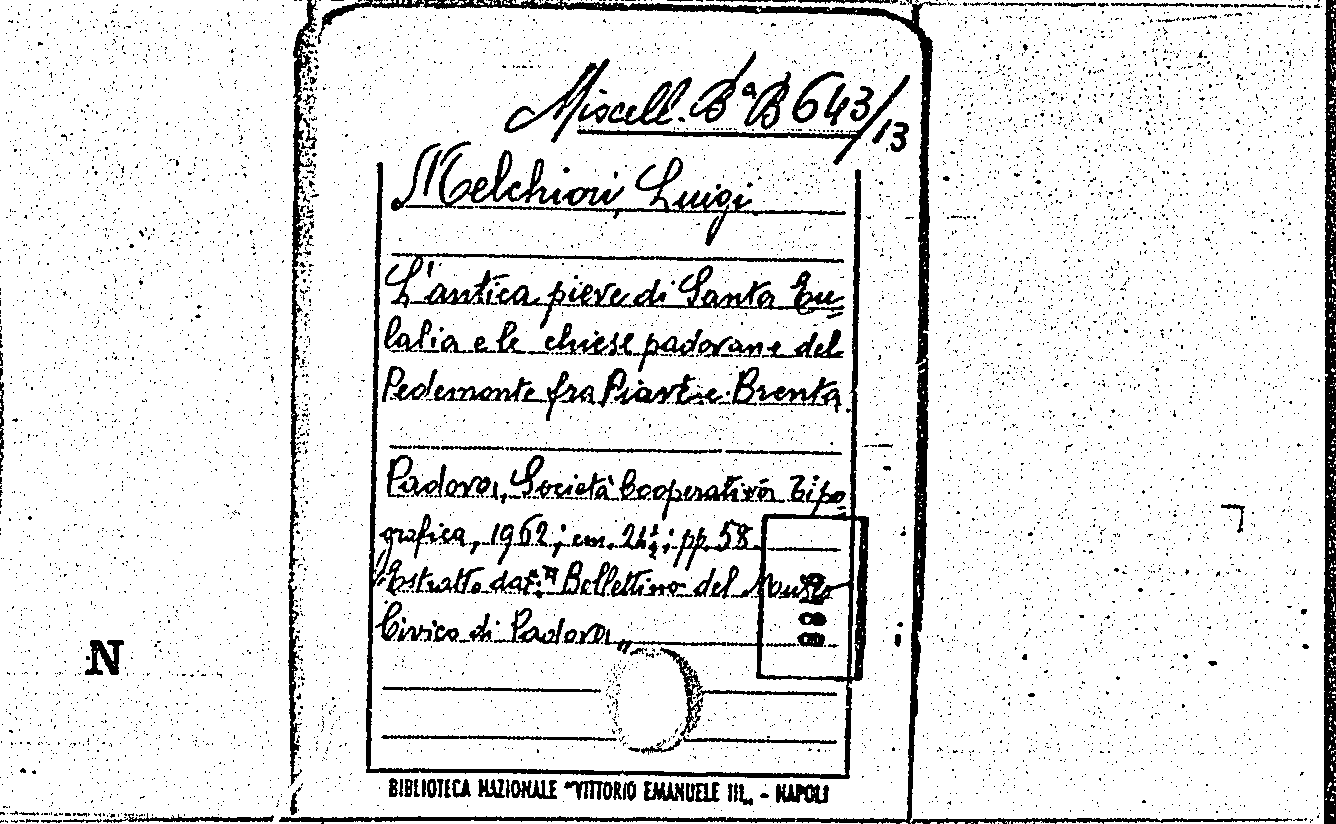 Miscell. Bª B 643/13
Melchiori, Luigi
L'antica pieve di Santa Eu=
lalia e le chiese padovane del
Pedemonte fra Piave e Brenta.
Padova, Società Cooperativa Tipo=
grafica, 1962; cm. 24½; pp. 58
Estratto dal: "Bollettino del Museo
Civico di Padova"
N
BIBLIOTECA NAZIONALE "VITTORIO EMANUELE III" - NAPOLI